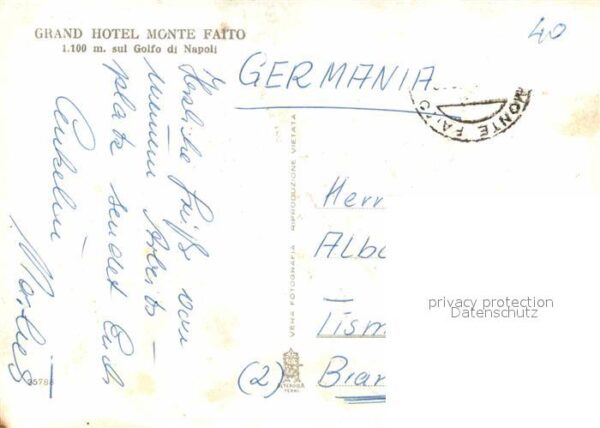 GRAND HOTEL MONTE FAITO
1.100 m. sul Golfo di Napoli
40
GERMANIA
MONTE FAITO
Herzliche Grüße von
meinem Arbeits-
platz sendet Euch
Enkelin
Marlies
VERA FOTOGRAFIA RIPRODUZIONE VIETATA
Herr
Albe
Tism
(2) Biar
privacy protection
Datenschutz